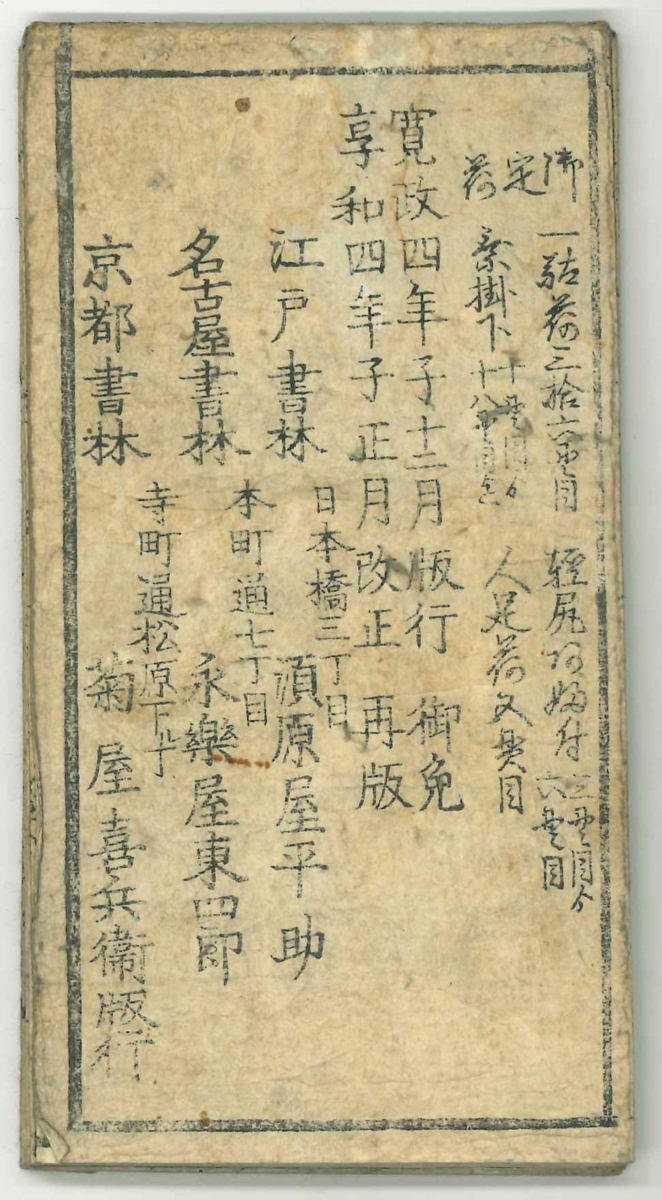 御定荷
一駄荷三拾六貫目 軽尻
六貫目
乗掛下
人足荷五貫目
寛政四年子十二月版行 御免
享和四年子正月改正 再版
江戸書林 日本橋三丁目 須原屋平助
名古屋書林 本町通七丁目 永樂屋東四郎
京都書林 寺町通松原下ル丁 菊屋喜兵衛版行